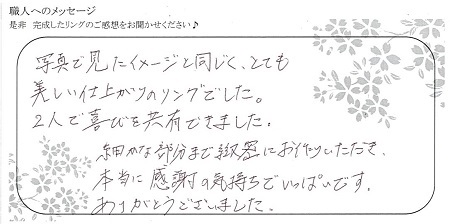 職人へのメッセージ
是非 完成したリングのご感想をお聞かせください♪
写真で見たイメージと同じく、とても
美しい仕上がりのリングでした。
2人で喜びを共有できました。
細かな部分まで緻密にお作りいただき、
本当に感謝の気持ちでいっぱいです。
ありがとうございました。